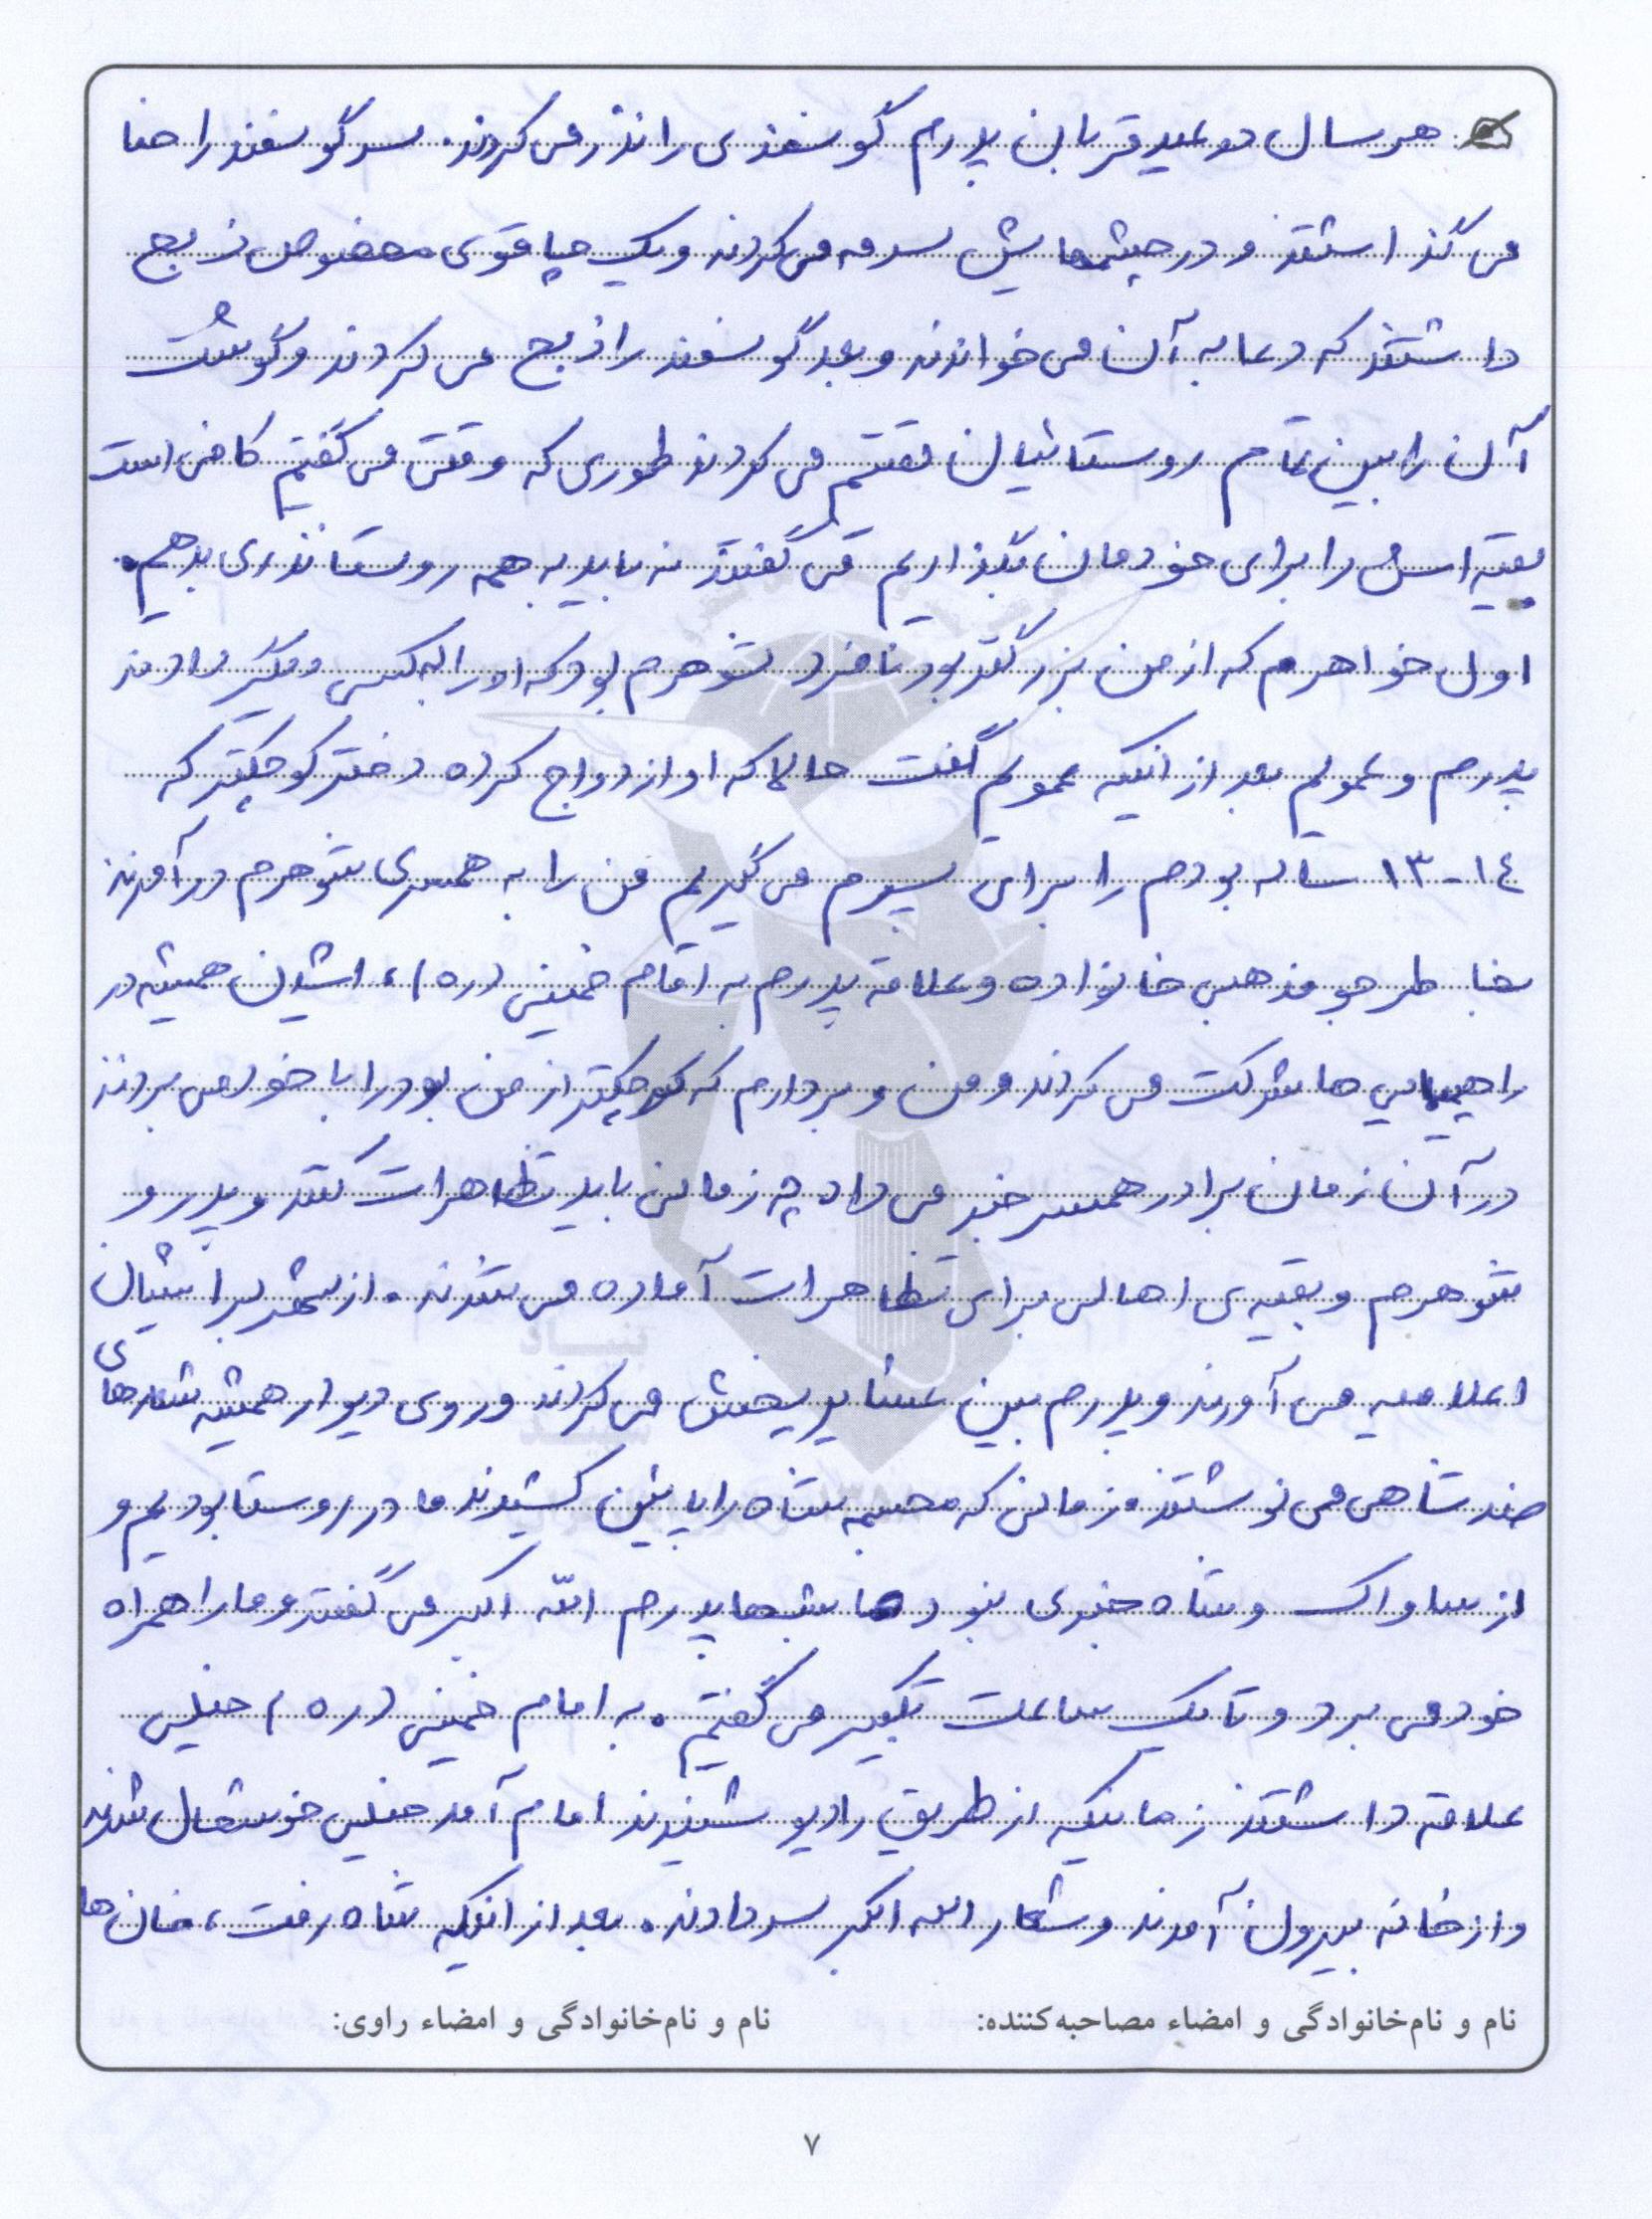 هر سال دو عید قربان پدرم گوسفندی را نذر می کردند. سر گوسفند را حنا
می گذاشتند و در چشمهایش سرمه می کردند و یک چاقوی مخصوص ذبح
داشتند که دعا به آن می خواندند و بعد گوسفند را ذبح می کردند و گوشت
آن را بین تمام روستائیان تقسیم می کردند طوری که وقتی می گفتیم کافی است
بقیه اش را برای خودمان بگذاریم می گفتند نه باید به همه روستا نذری بدهیم.
اول خواهرم که از من بزرگتر بود نامزد شوهرم بود که او را به کسی دیگر دادند
پدرم و عمویم بعد از اینکه عمویم گفت حالا که او ازدواج کرده دختر کوچکتر که
۱۳-۱٤ ساله بودم را برای پسرم می گیریم من را به همسری شوهرم در آمدند
بخاطر جو مذهبی خانواده و علاقه پدرم به امام خمینی (ره)، ایشان همیشه در
راهپیمایی ها شرکت می کردند و من و بردارم که کوچکتر از من بود را با خود می بردند
در آن زمان برادر همسر خبر می داد چه زمانی باید تظاهرات کنند و پدر و
شوهرم و بقیه ی اهالی برای تظاهرات آماده می شدند. از شهر برایشان
اعلامیه می آورند و پدرم بین عشایر پخش می کردند و روی دیوار همیشه شعارهای
ضد شاهی می نوشتند. زمانی که مجسمه شاه را پایین کشیدند ما در روستا بودیم و
از ساواک و شاه خبری نبود ما شبها پدرم الله اکبر می گفتند و ما را همراه
خود می برد و تا یک ساعت تکبیر می گفتیم. به امام خمینی (ره) خیلی
علاقه داشتند زمانیکه از طریق رادیو شنیدند امام آمد خیلی خوشحال شدند
و از خانه بیرون آمدند و شعار الله اکبر سر دادند. بعد از اینکه شاه رفت، خان ها
نام و نام‌خانوادگی و امضاء مصاحبه‌کننده: نام و نام‌خانوادگی و امضاء راوی:
۷